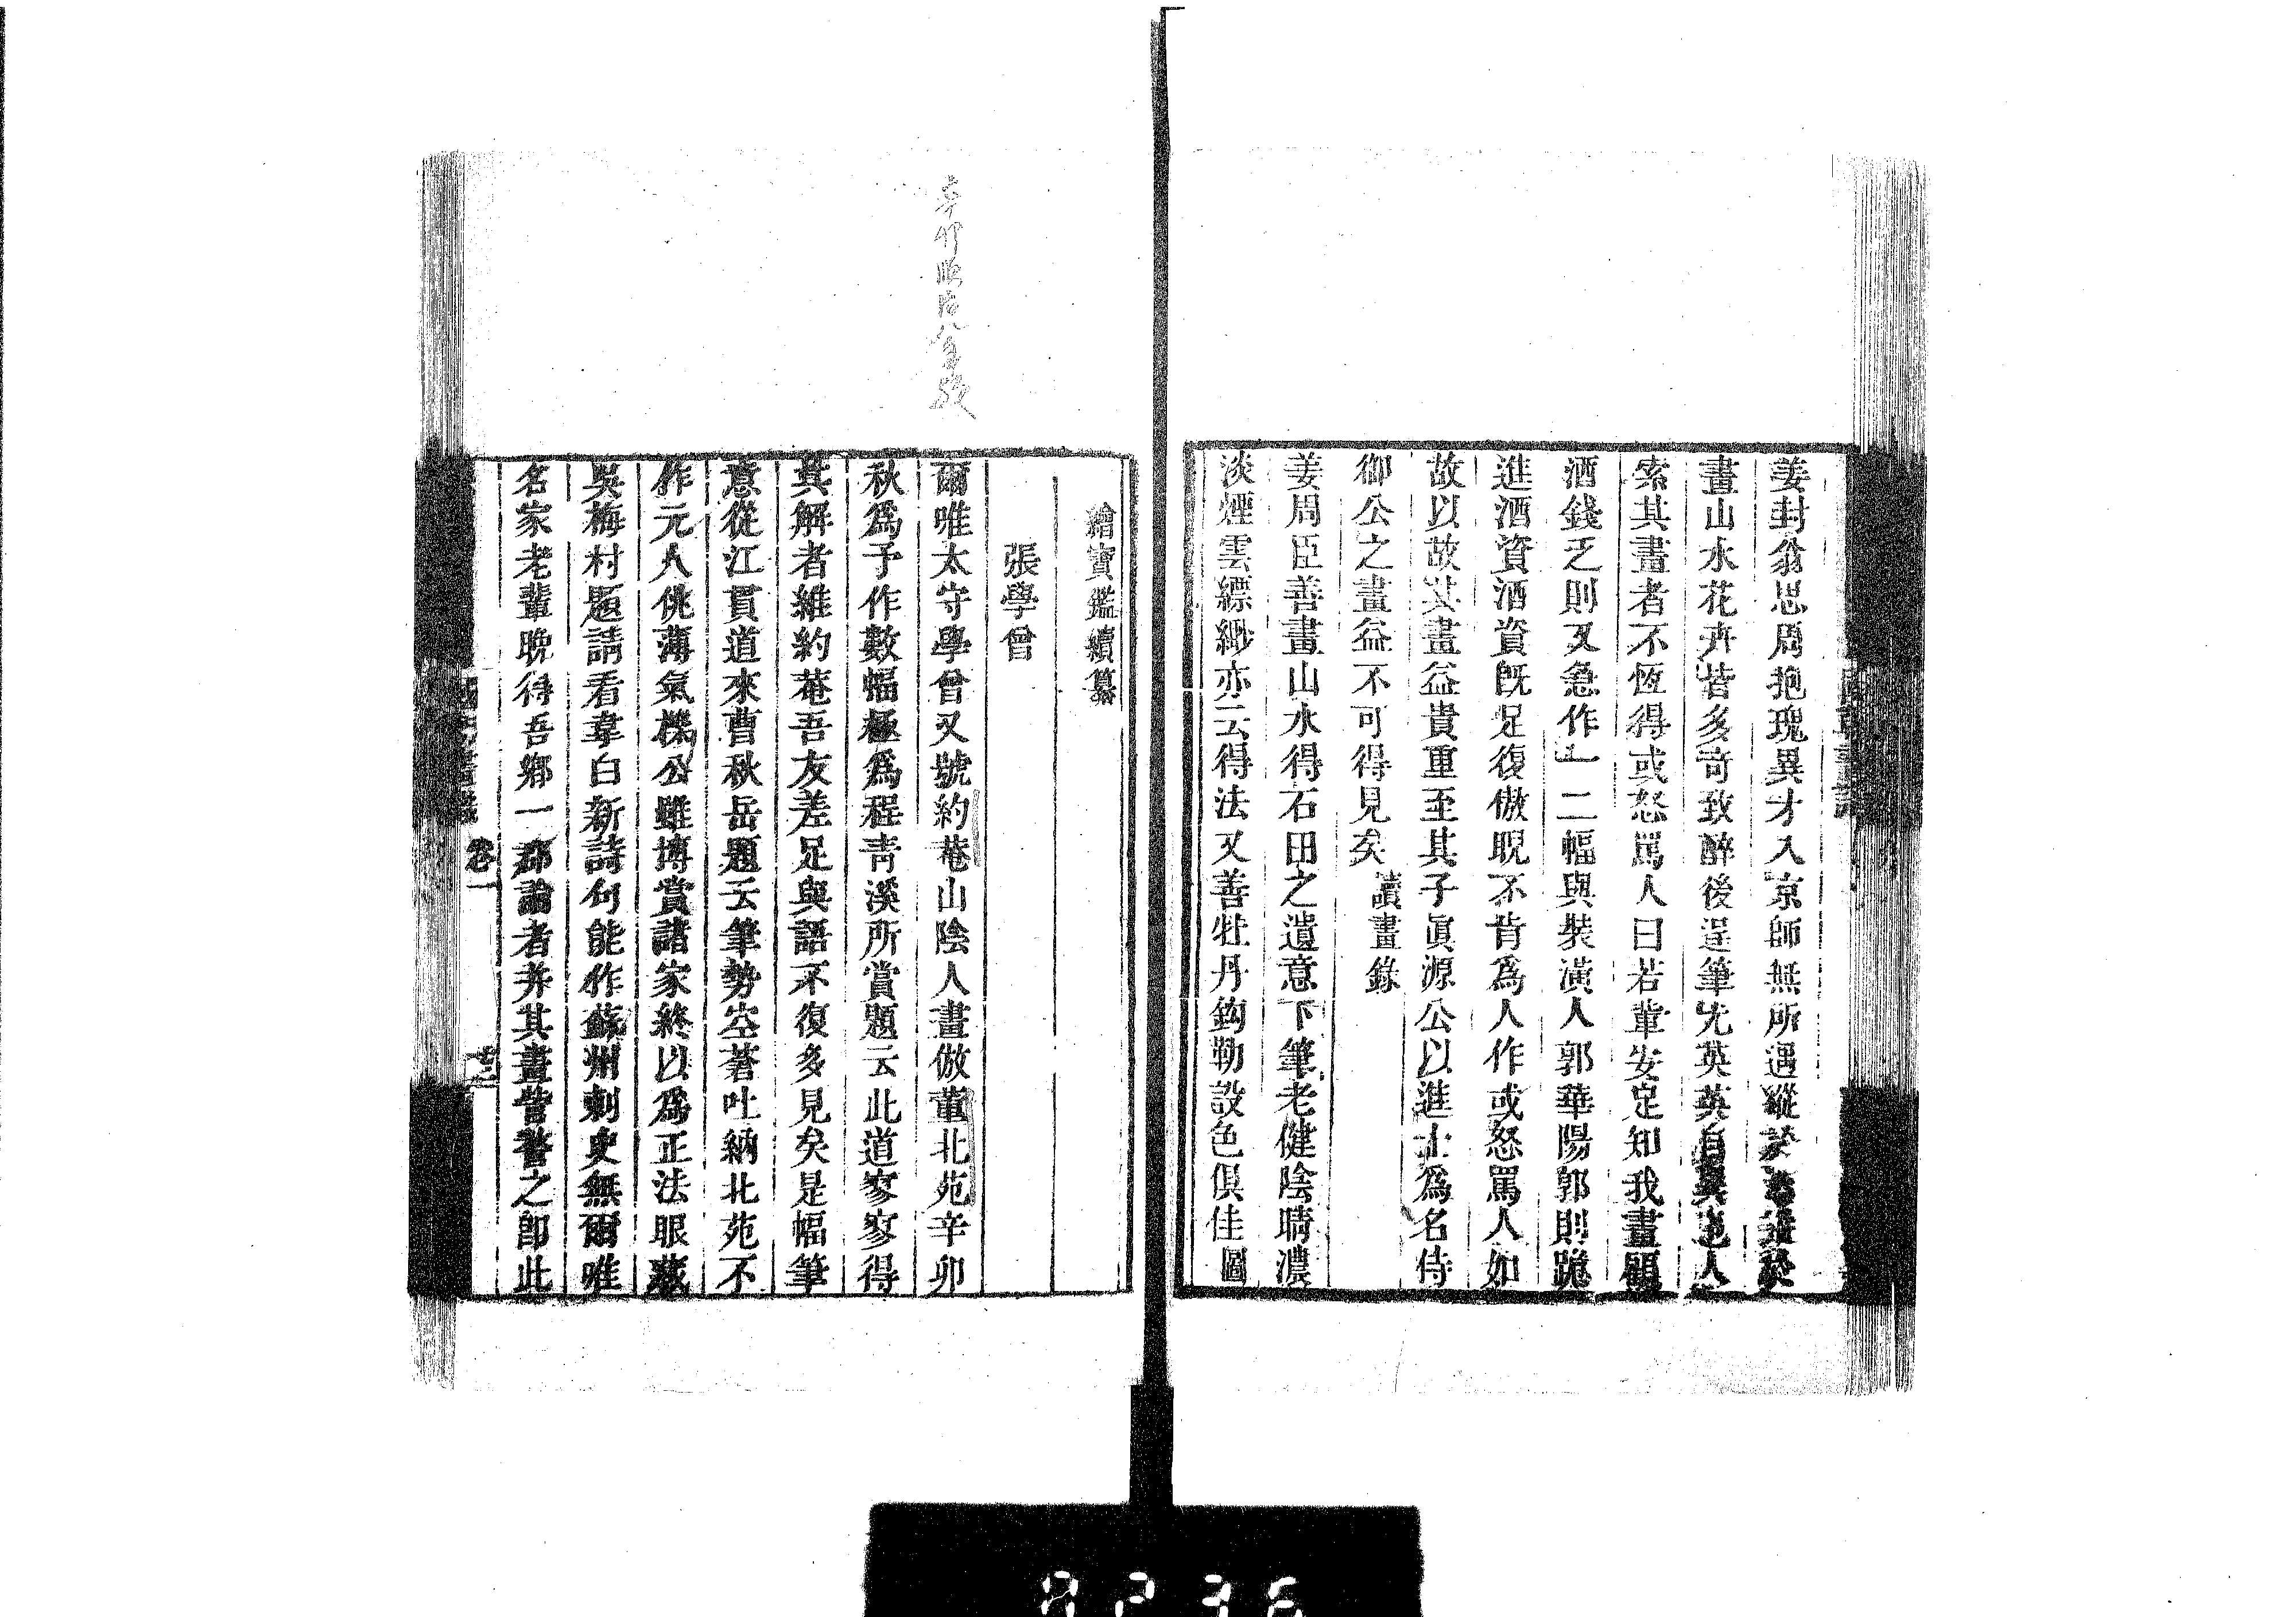 姜封翁思周抱瑰異才入京師無所遇縱於酒於
畫山水花卉皆多奇致醉後逞筆尤英英自異也人
索其畫者不恆得或怒罵人曰若輩安足知我畫顧
酒錢乏則又急作一二幅與裝潢人郭華陽郭則跪
進酒資酒資既足復傲睨不肯為人作或怒罵人如
故以故其畫益貴重至其子眞源公以進士為名侍
御公之畫益不可得見矣讀畫錄
姜周臣善畫山水得石田之遺意下筆老健陰晴濃
淡煙雲縹緲亦云得法又善牡丹鈎勒設色俱佳圖
繪寶鑑續纂
張學曾
爾唯太守學曾又號約菴山陰人畫倣董北苑辛卯
秋爲予作數幅極爲程靑溪所賞題云此道寥寥得
其解者維約菴吾友差足與語不復多見矣是幅筆
意從江貫道來曹秋岳題云筆勢空蒼吐納北苑不
作元人佻薄氣櫟公雖博賞諸家終以爲正法眼藏
吳梅村題請看韋白新詩句能作蘇州刺史無爾唯
名家老輩晚得吾鄉一鄙論者并其畫訾謷之卽此
卷一
辛卯順治八年